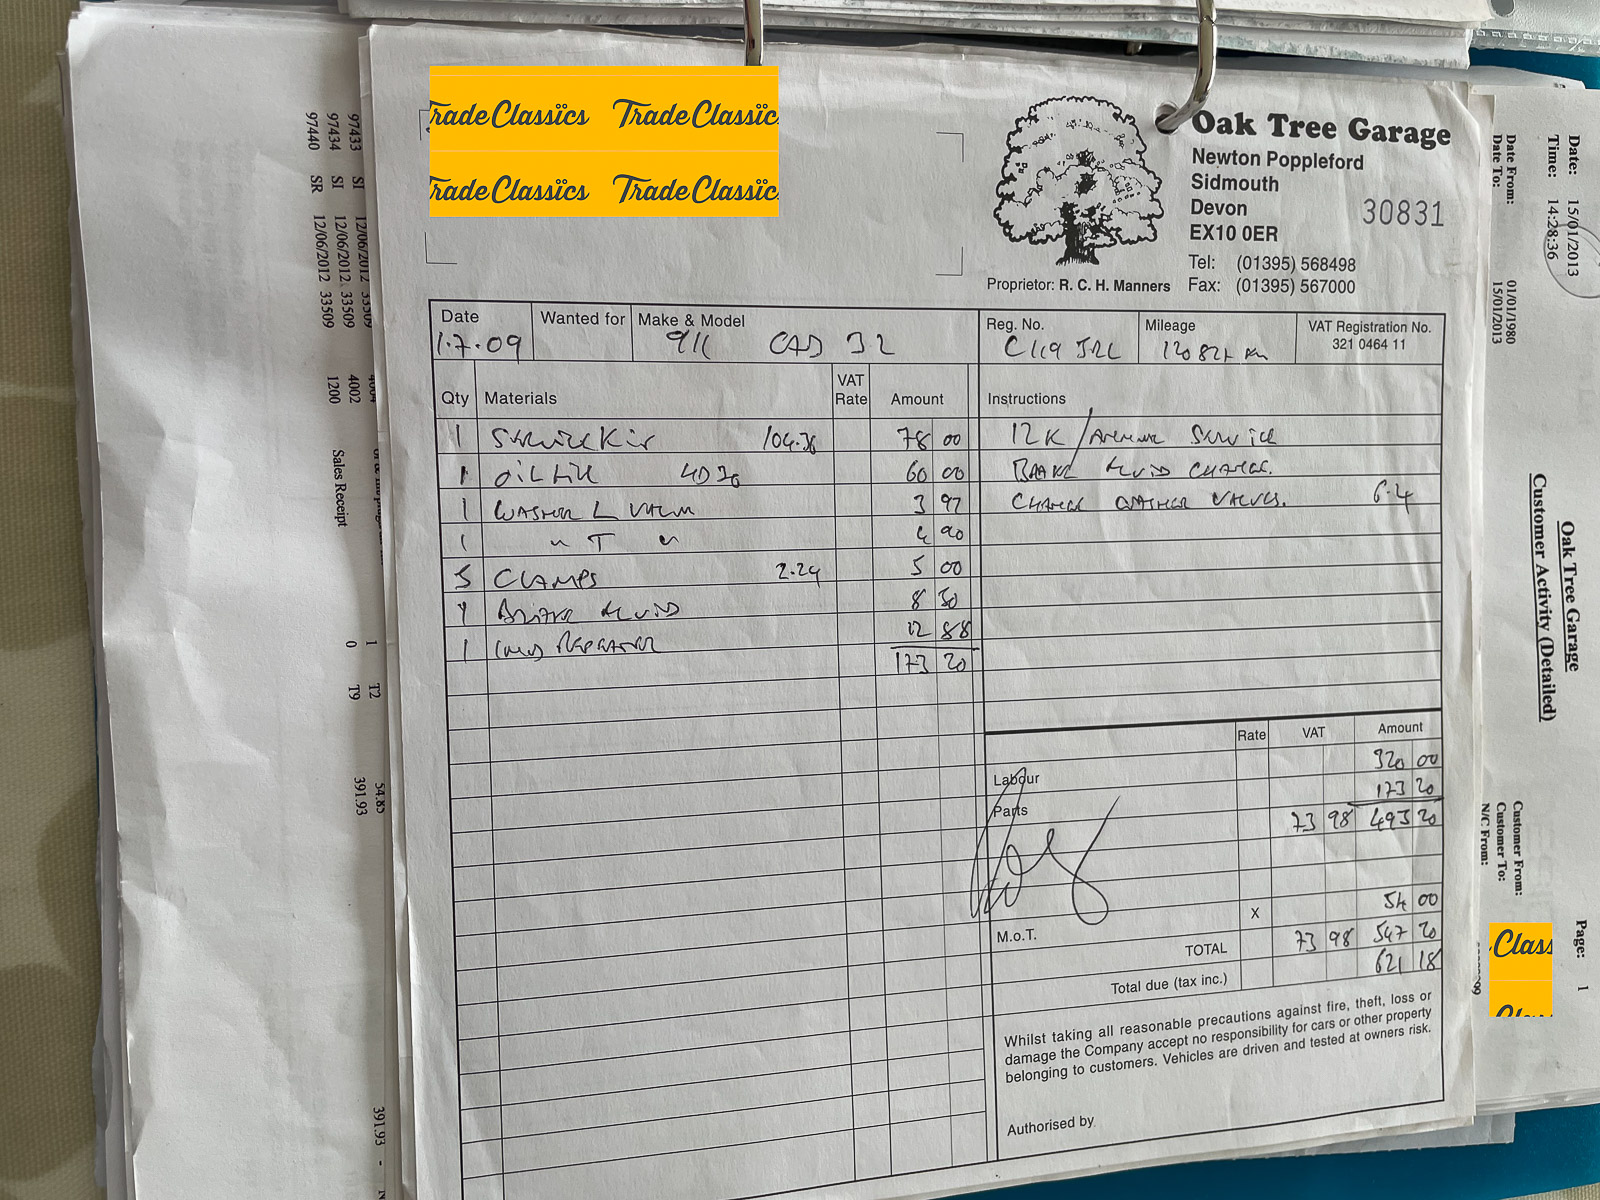 Trade Classics Trade Classics
Trade Classics Trade Classics
Oak Tree Garage
Newton Poppleford
Sidmouth
Devon
EX10 0ER
30831
Tel: (01395) 568498
Fax: (01395) 567000
Proprietor: R. C. H. Manners
Date Wanted for Make & Model Reg. No. Mileage VAT Registration No.
1.7.09 911 CAB 3 2 C119 321 0464 11
Qty Materials VAT Rate Amount Instructions
1 Service Kit 104.36 78 00 12K / Service
1 Oil Fill 60 00 Brake Fluid Change.
1 Washer L Valve 3 97 Change Washer Valves. 6.4
1 " T " 4 90
5 Clamps 2.24 5 00
1 Brake Fluid 8 50
1 Repeater 12 88
173 20
Rate VAT Amount
Labour 320 00
Parts 173 20
73 98 493 20
M.o.T. X 54 00
TOTAL 73 98 547 20
Total due (tax inc.) 621 18
Whilst taking all reasonable precautions against fire, theft, loss or
damage the Company accept no responsibility for cars or other property
belonging to customers. Vehicles are driven and tested at owners risk.
Authorised by
97433 SI 12/06/2012 33509
97434 SI 12/06/2012 33509 4002
97440 SR 12/06/2012 33509 1200 Sales Receipt
1 T2 54.85
0 T9 391.93
391.93 -
Date: 15/01/2013
Time: 14:28:36
Page: 1
Oak Tree Garage
Customer Activity (Detailed)
Date From: 01/01/1980
Date To: 15/01/2013
Customer From:
Customer To:
N/C From:
Class